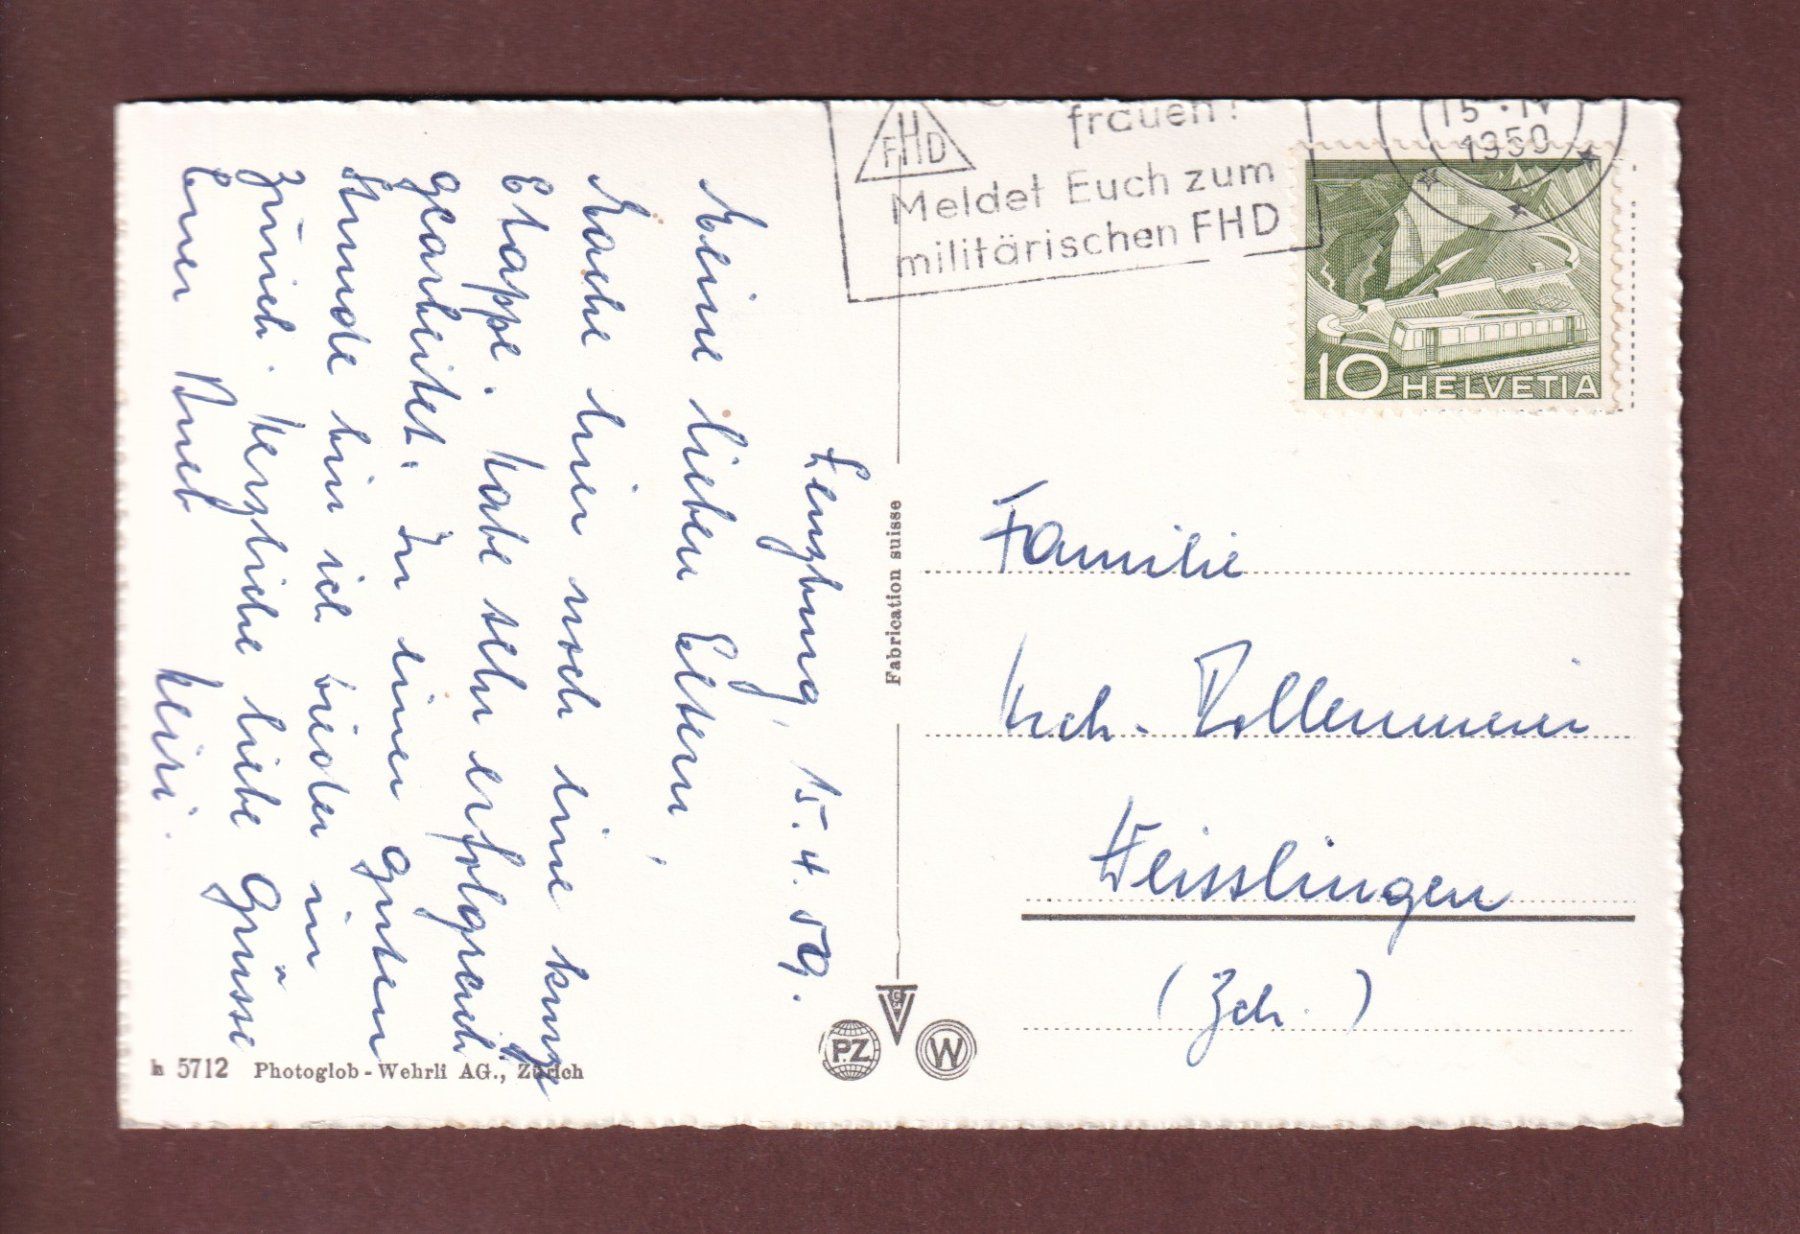 Lenzburg, 15. 4. 50.
Meine lieben Eltern,
Mache hier noch eine kurze
Etappe. Habe sehr erfolgreich
gearbeitet. In einer guten
Stunde bin ich wieder in
Zürich. Herzliche liebe Grüsse
Euer Heiri.
h 5712 Photoglob-Wehrli AG., Zürich
Fabrication suisse
PZ
W
FHD
frauen!
Meldet Euch zum
militärischen FHD
15 · IV
1950
10 HELVETIA
Familie
Hch. Bollenmeier
Weisslingen
(Zch.)